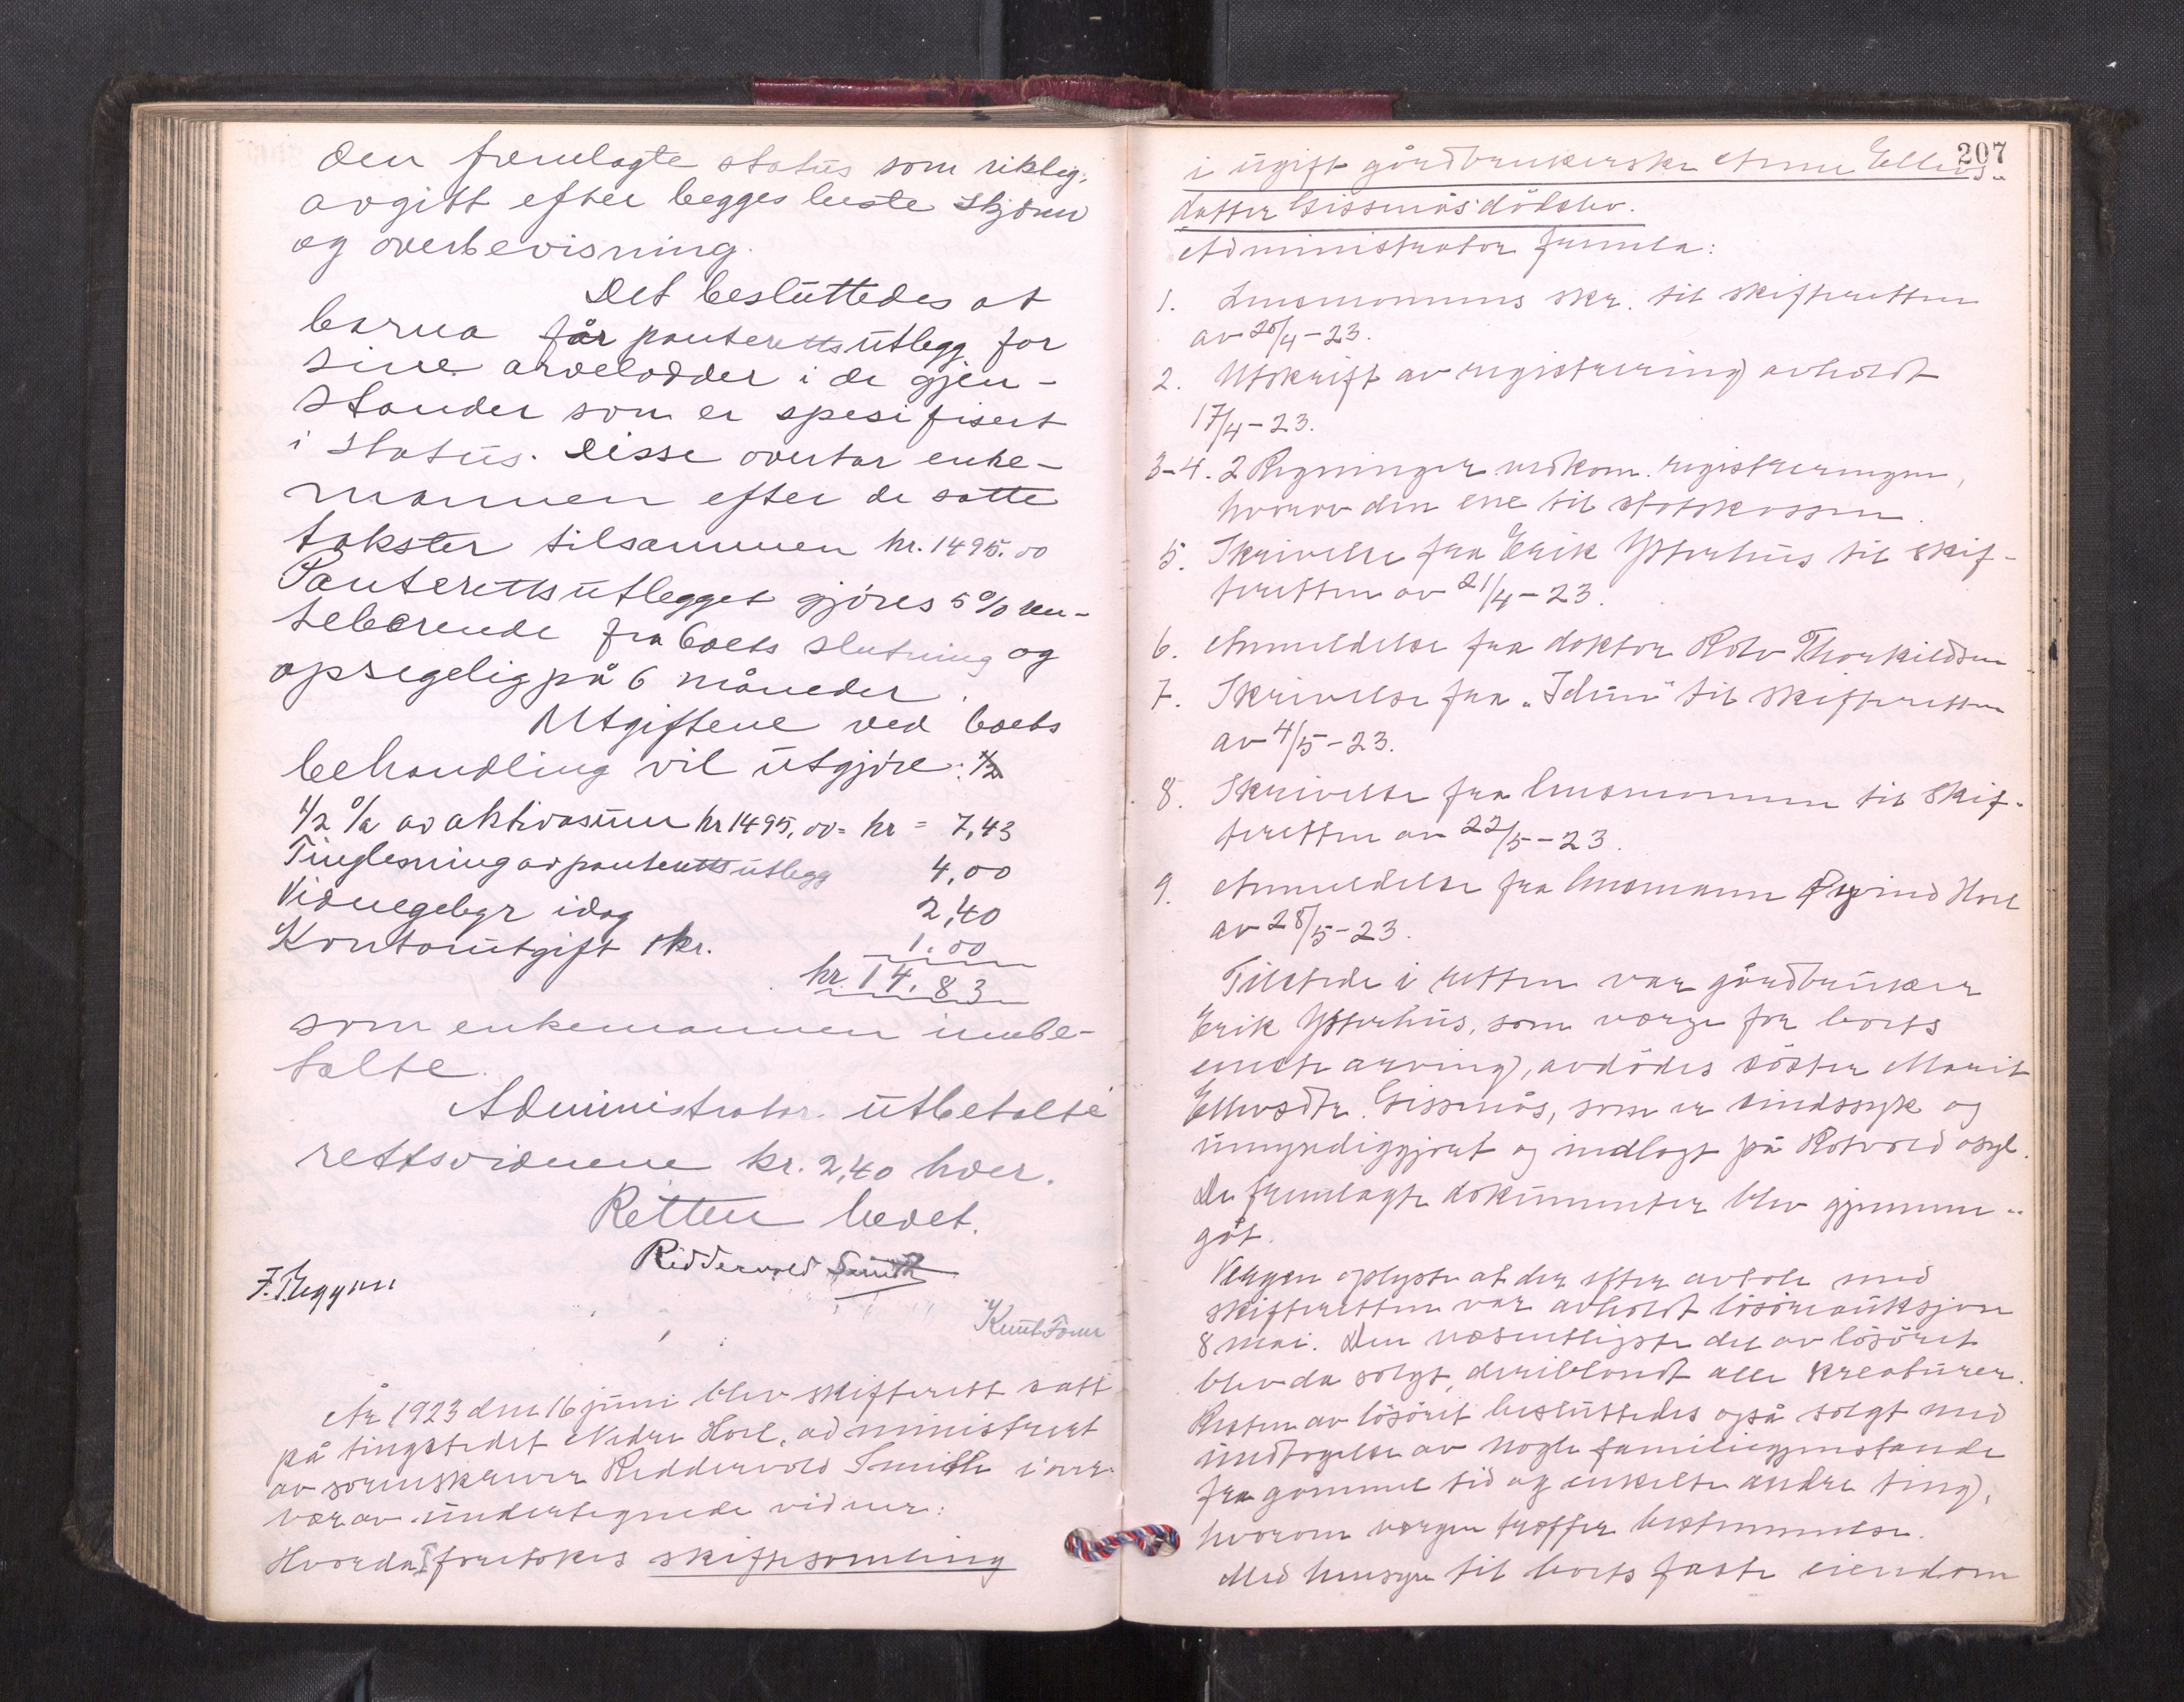 den fremlagte status som riktig,
avgitt efter begges beste skjönn
og overbevisning.
Det besluttedes at
barna får panterettsutlegg for
sine arvelodder i de gjen-
stander som er spesifisert
i status. Disse overtar enke-
mannen efter de satte
takster tilsammen kr. 1495.00
Panterettsutlegget gjöres 5% ren-
teberende fra boets slutning og
opsigelig på 6 måneder.
Utgiftene ved boets
behandling vil utgjöre:
1/2 % av aktivasum kr 1495,00 = kr = 7,43
Tinglesning av panterettsutlegg 4,00
Vidnegebyr idag 2,40
Kontorutgift 1 kr. 1.00
kr. 14.83
som enkemannen innbe-
talte.
Administrator utbetalte
rettsvidnene kr. 2,40 hver.
Retten hevet.
Riddervold Smith
Knut Foner
År 1923 den 16 juni blev skifterett satt
på tingstedet Nedre Hoel, administrert
av sorenskriver Riddervold Smith i over-
vær av undertegnede vidner:
Hvorda foretokes skiftesamling
207
i ugift gårdbrukerske Anne Ellevs-
datter Gissnås' dödsbo.
Administrator fremla:
1. Lensmannens skr. til skifteretten
av 20/4-23.
2. Utskrift av registrering avholdt
17/4-23.
3-4. 2 Regninger vedkom. registreringen,
hvorav den ene til statskassen.
5. Skrivelse fra Erik Ytterhus til skif-
teretten av 21/4-23.
6. Anmeldelse fra doktor Rolv Thorkildsen
7. Skrivelse fra "Idun" til skifteretten
av 4/5-23.
8. Skrivelse fra lensmannen til skif-
teretten av 22/5-23.
9. Anmeldelse fra lensmann Øyvind Hoel
av 28/5-23.
Tilstede i retten var gårdbruker
Erik Ytterhus, som værge for boets
eneste arving, avdödes söster Marit
Ellevsdtr. Gissnås, som er sindssyk og
umyndiggjort og indlagt på Rotvold asyl.
De fremlagte dokumenter blev gjennem-
gåt.
Vergen oplyste at der efter avtale med
skifteretten var avholdt lösöreauksjon
8 mai. Den væsentligste del av lösöret
blev da solgt, deriblandt alle kreaturer.
Resten av lösöret besluttedes også solgt med
undtagelse av nogle familiegjenstande
fra gammel tid og enkelte andre ting,
hvorom vergen træffer bestemmelse.
Med hensyn til boets faste eiendom